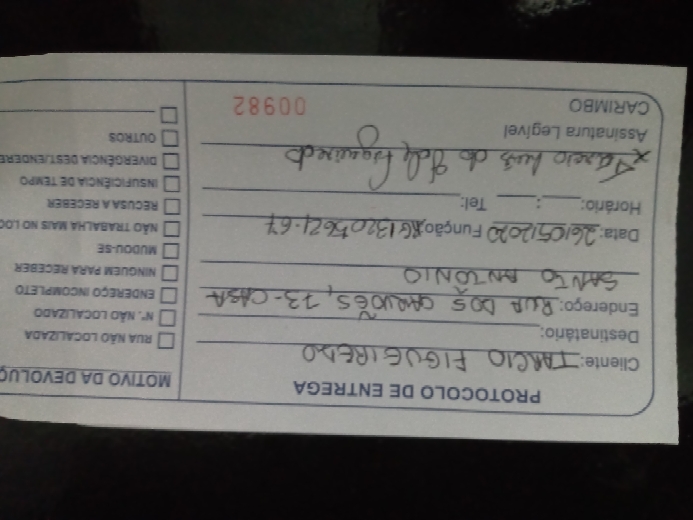 PROTOCOLO DE ENTREGA
Cliente: TARCIO FIGUEIREDO
Destinatário:
Endereço: RUA DOS 73-CASA
SANTO ANTONIO
Data: 26/05/2020 Função:
Horário: : Tel:
Tarcio Luis do Figueiredo
Assinatura Legível
CARIMBO
00982
MOTIVO DA DEVOLUÇ
RUA NÃO LOCALIZADA
Nº. NÃO LOCALIZADO
ENDEREÇO INCOMPLETO
NINGUEM PARA RECEBER
MUDOU-SE
NÃO TRABALHA MAIS NO LOC
RECUSA RECEBER
INSUFICIÊNCIA DE TEMPO
DIVERGÊNCIA DEST/ENDERE
OUTROS